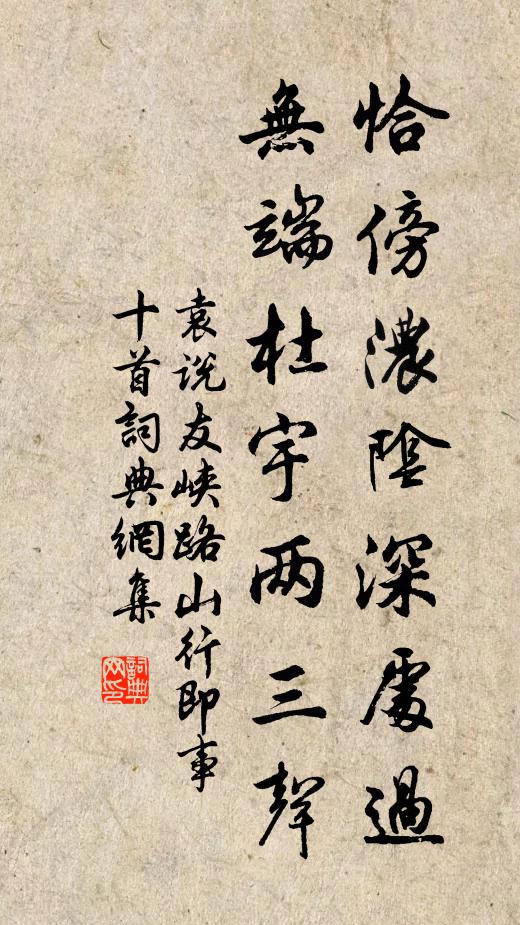 恰傍濃陰深處過
無端杜宇两三聲
袁说友峡路山行即事
十首詞典網集
詞典
网印